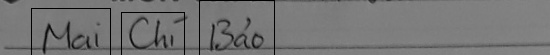 Mai Chí Bảo